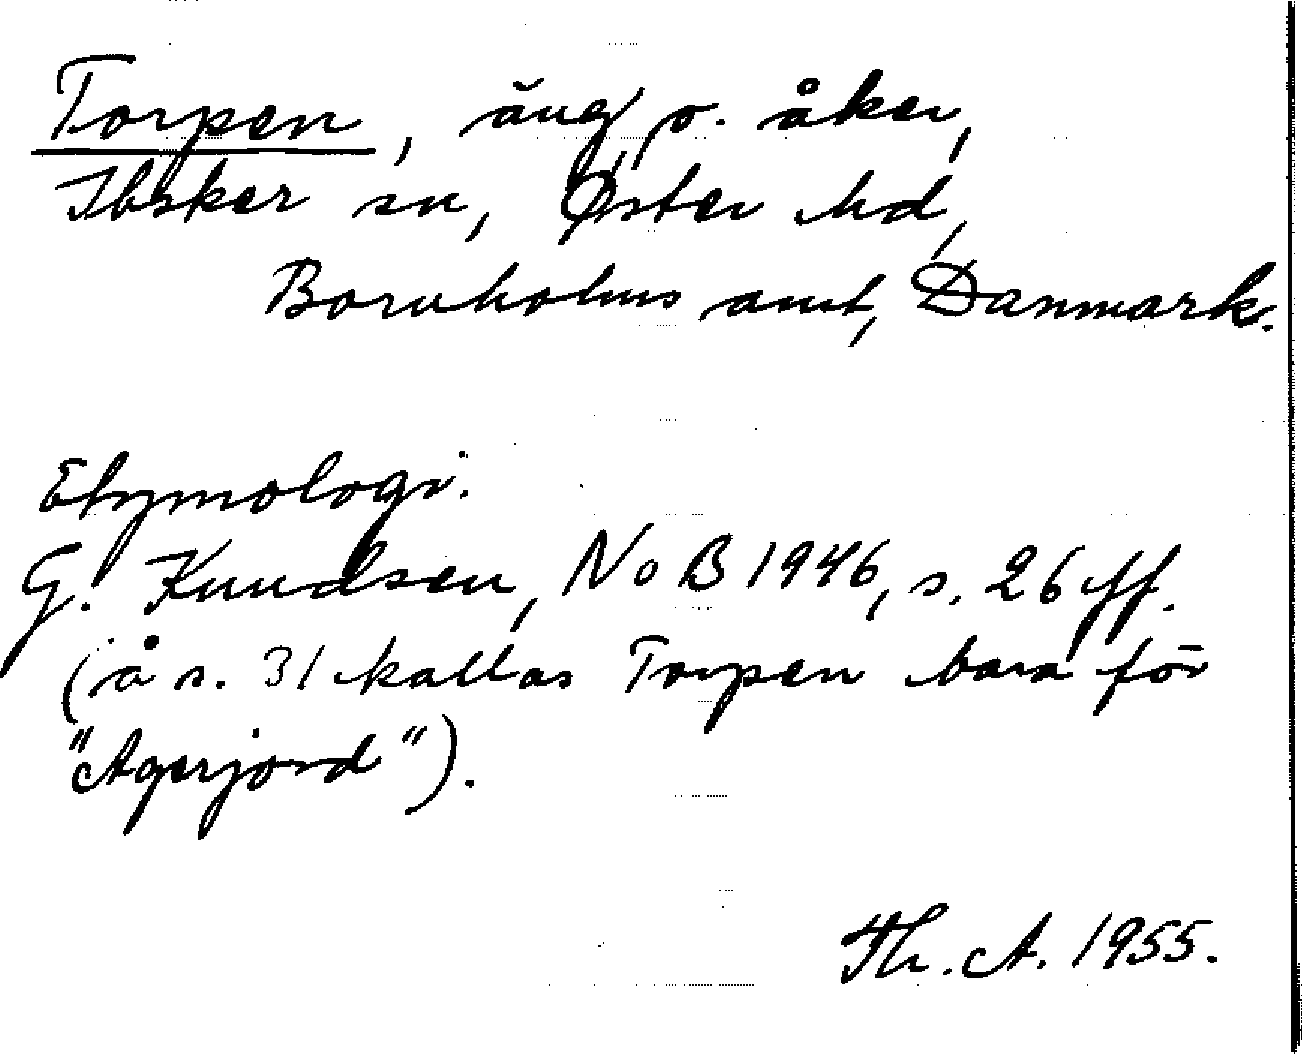 Torpen, äng o. åker,
Ibsker sn, Øster hd,
Bornholms amt, Danmark.
Etymologi:
G. Knudsen, NoB 1946, s. 26 ff.
(å s. 31 kallas Torpen bara för
"Agerjord").
Th. A. 1955.